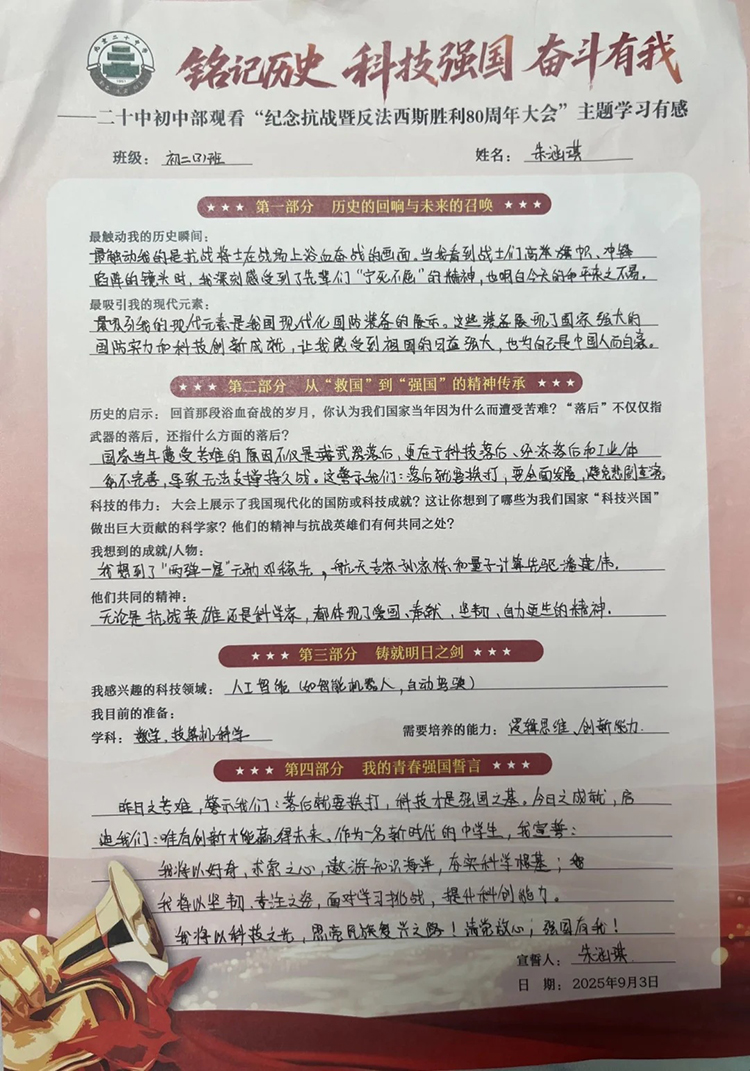 铭记历史 科技强国 奋斗有我
——二十中初中部观看“纪念抗战暨反法西斯胜利80周年大会”主题学习有感
班级：初二(3)班 姓名：朱涵琪
★★★ 第一部分 历史的回响与未来的召唤 ★★★
最触动我的历史瞬间：
最触动我的是抗战将士在战场上浴血奋战的画面。当我看到战士们高举旗帜、冲锋
陷阵的镜头时，我深刻感受到了先辈们“宁死不屈”的精神，也明白今天的和平来之不易。
最吸引我的现代元素：
最吸引我的现代元素是我国现代化国防装备的展示。这些装备展现了国家强大的
国防实力和科技创新成就，让我感受到祖国的日益强大，也为自己是中国人而自豪。
★★★ 第二部分 从“救国”到“强国”的精神传承 ★★★
历史的启示：回首那段浴血奋战的岁月，你认为我们国家当年因为什么而遭受苦难？“落后”不仅仅指
武器的落后，还指什么方面的落后？
国家当年遭受苦难的原因不仅是武器落后，更在于科技落后、经济落后和工业体
系不完善，导致无法支撑持久战。这警示我们：落后就要挨打，要全面发展，避免悲剧重演。
科技的伟力：大会上展示了我国现代化的国防或科技成就？这让你想到了哪些为我们国家“科技兴国”
做出巨大贡献的科学家？他们的精神与抗战英雄们有何共同之处？
我想到的成就/人物：
我想到了“两弹一星”元勋邓稼先，航天专家孙家栋和量子计算先驱潘建伟。
他们共同的精神：
无论是抗战英雄还是科学家，都体现了爱国、奉献、坚韧、自力更生的精神。
★★★ 第三部分 铸就明日之剑 ★★★
我感兴趣的科技领域：人工智能（如智能机器人，自动驾驶）
我目前的准备：
学科：数学，计算机科学 需要培养的能力：逻辑思维、创新能力.
★★★ 第四部分 我的青春强国誓言 ★★★
昨日之苦难，警示我们：落后就要挨打，科技才是强国之基。今日之成就，启
迪我们：唯有创新才能赢得未来。作为一名新时代的中学生，我宣誓：
我将以好奇，求索之心，遨游知识海洋，夯实科学根基；
我将以坚韧、专注之姿，面对学习挑战，提升科创能力。
我将以科技之光，照亮民族复兴之路！请党放心；强国有我！
宣誓人：朱涵琪
日 期：2025年9月3日